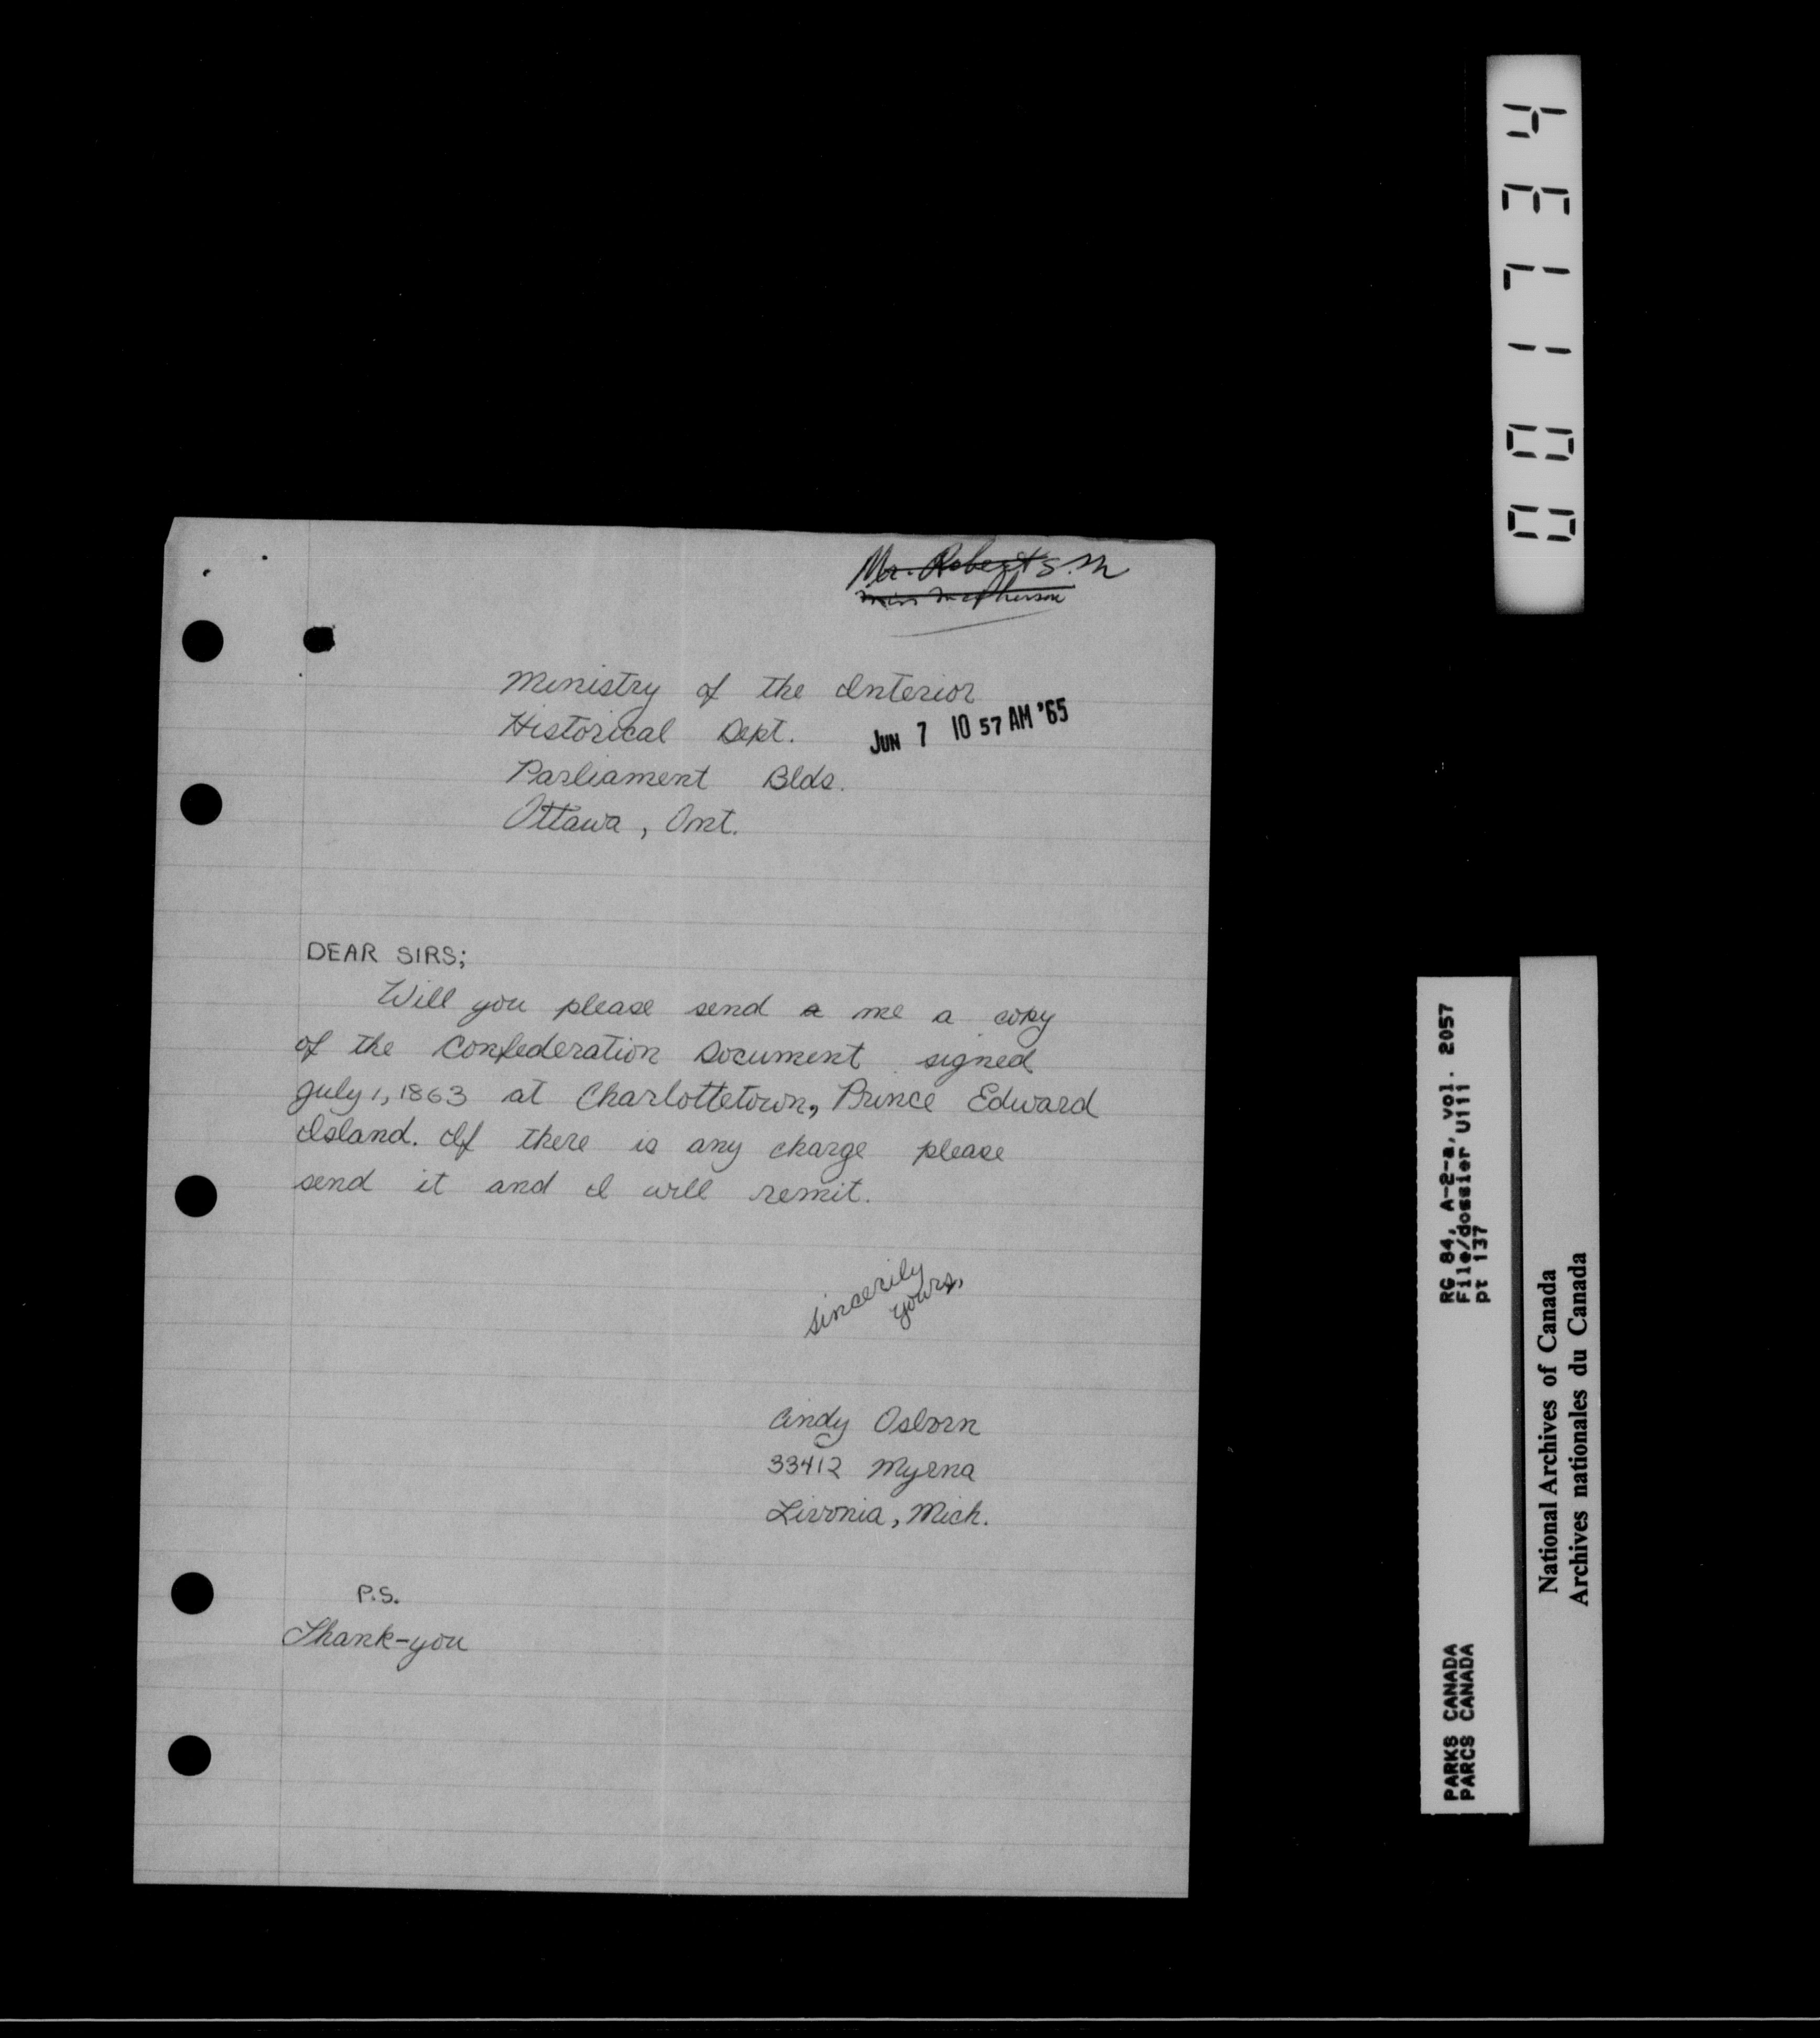 Mr. Roberts. M
Miss McPherson
Ministry of the Interior
Historical Dept.
JUN 7 10 57 AM '65
Parliament Blds.
Ottawa, Ont.
DEAR SIRS;
Will you please send a me a copy
of the Confederation Document signed
July 1, 1863 at Charlottetown, Prince Edward
Island. If there is any charge please
send it and I will remit.
Sincerily
yours,
Cindy Osborn
33412 Myrna
Livonia, Mich.
P.S.
Thank-you
001734
PARKS CANADA RG 84, A-2-a, vol. 2057
PARCS CANADA File/dossier U111
pt 137
National Archives of Canada
Archives nationales du Canada